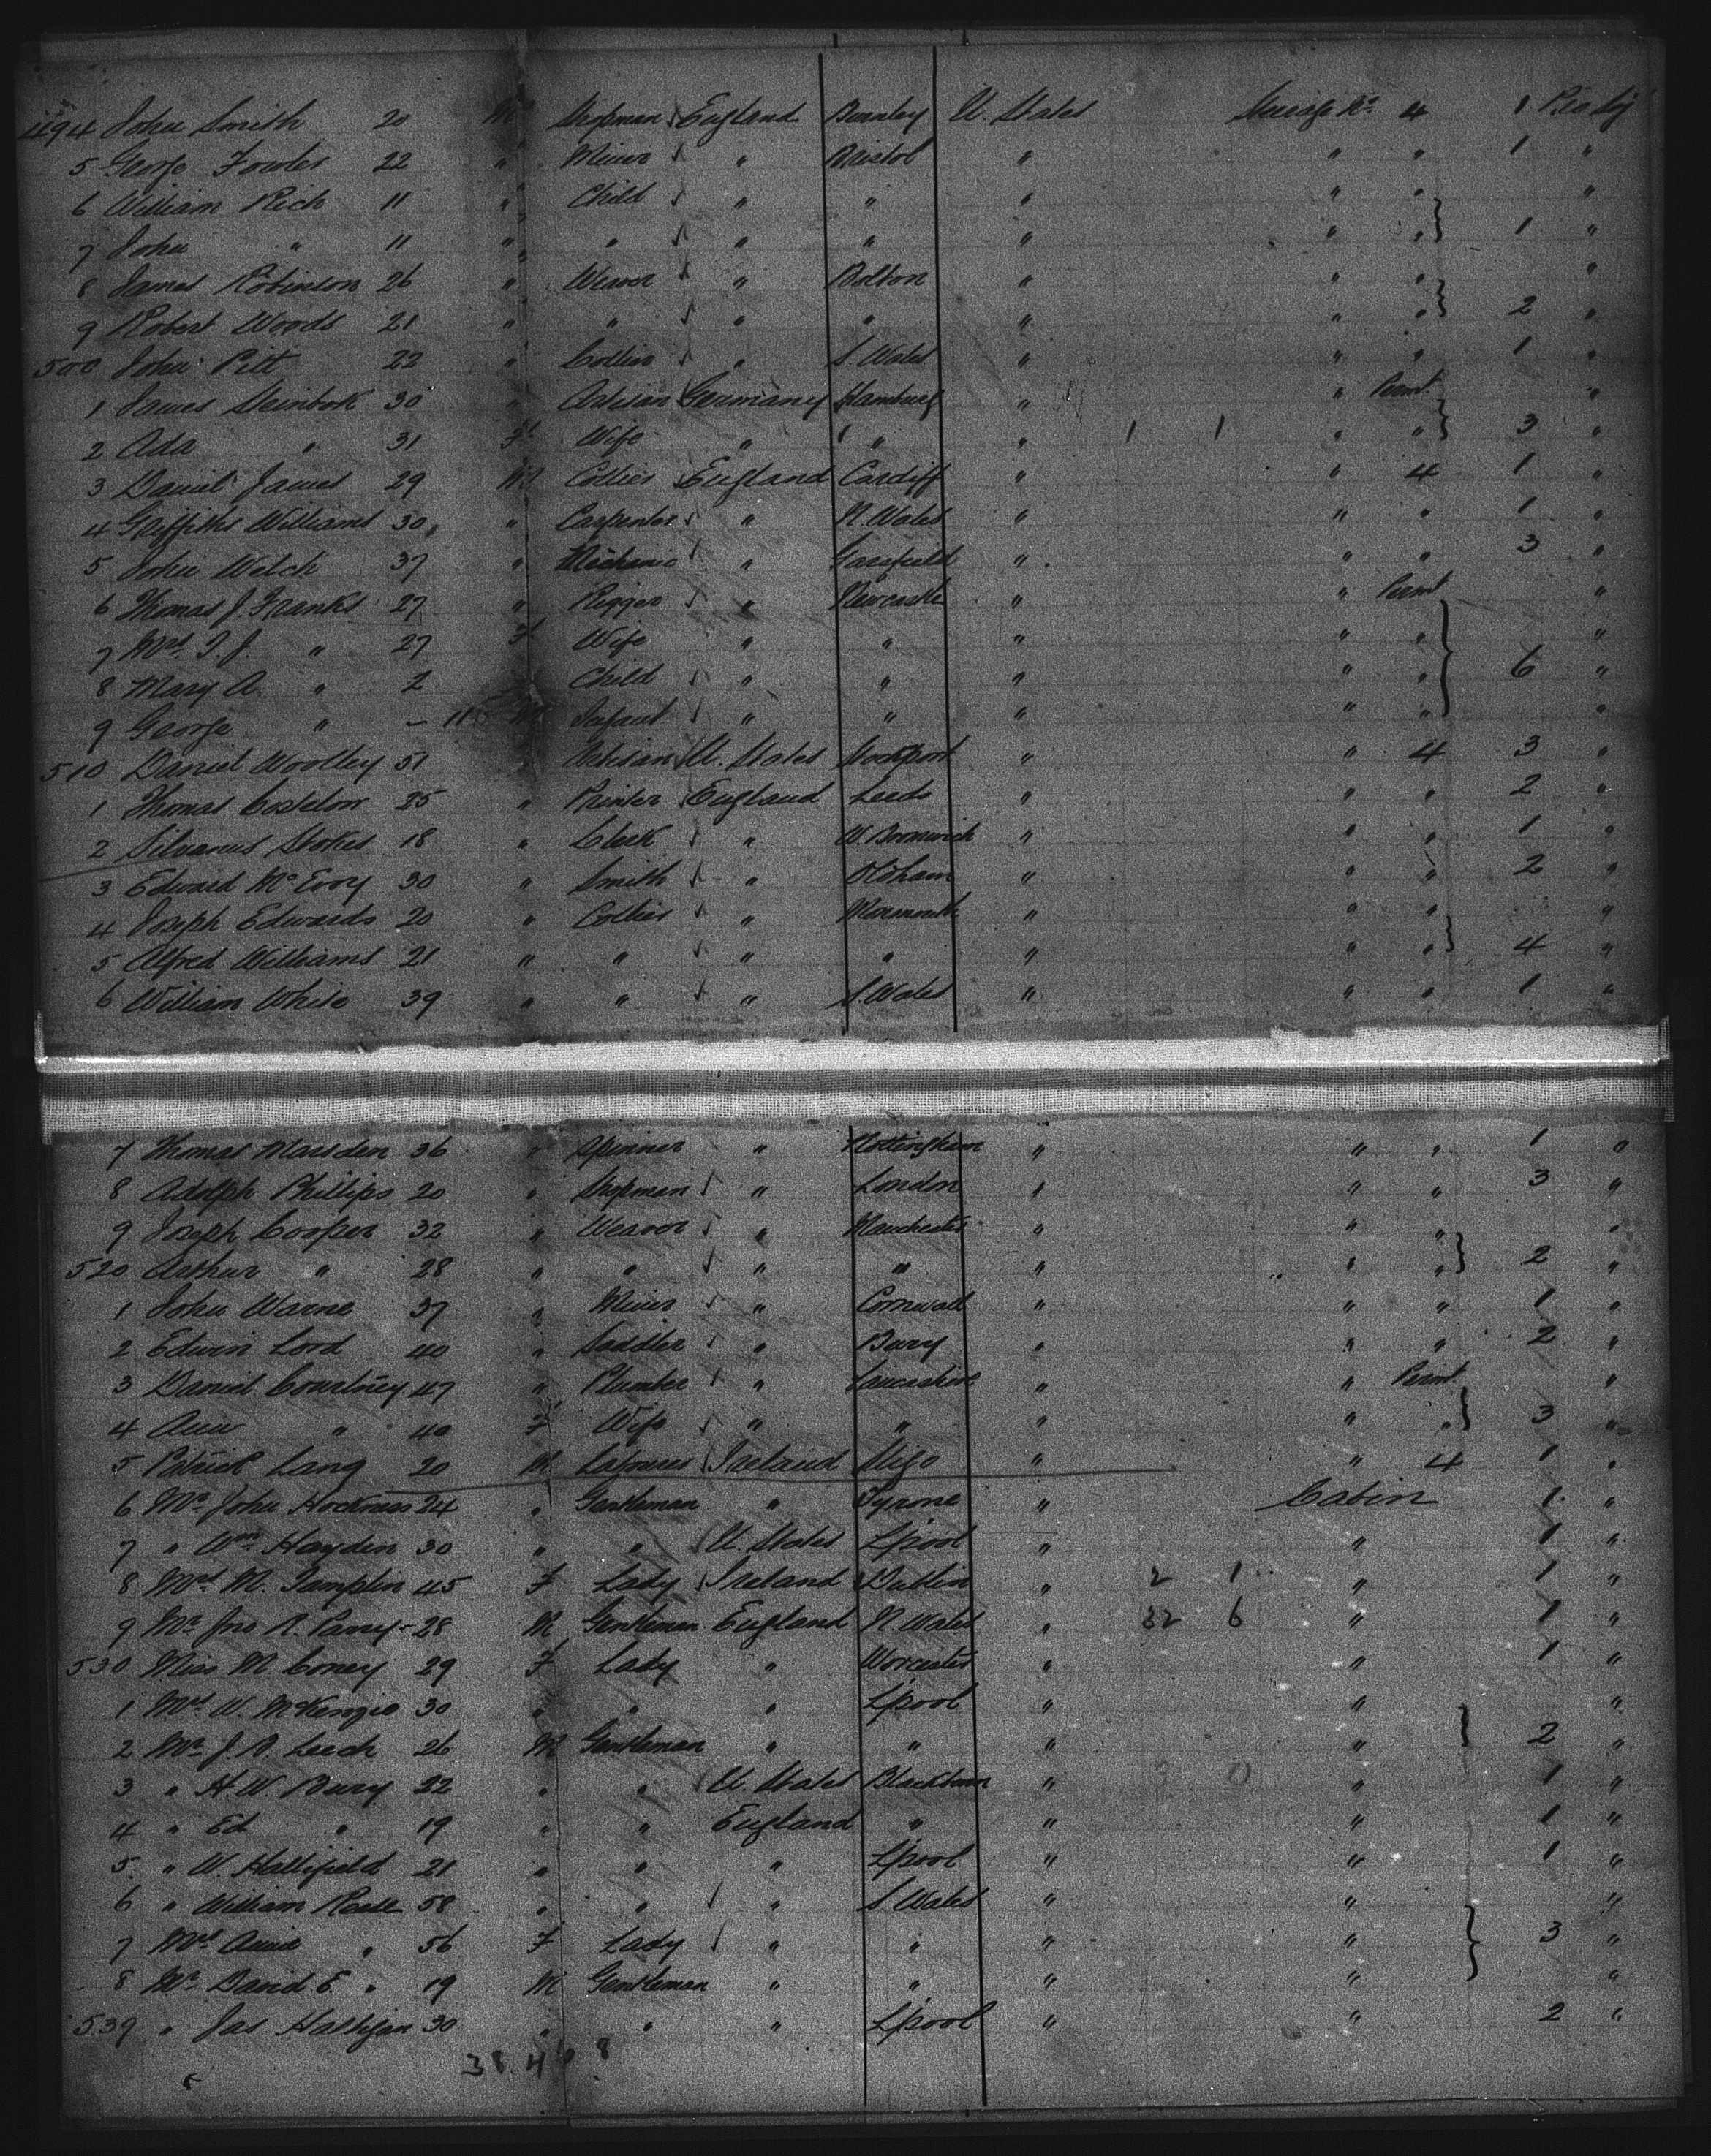 494 John Smith 20 M Shopman England Burnley U. States Steerage No 4 1
5 George Fowler 22 " Miner " Bristol " " " 1 "
6 William Rich 11 " Child " " " " " "
7 John " 11 " " " " " " " 1 "
8 James Robinson 26 " Weaver " Bolton " " " "
9 Robert Woods 21 " " " " " " " 2 "
500 John Pitt 22 " Collier " S. Wales " " " 1 "
1 James Steinbok 30 " Artisan Germany Hamburg " " Permt "
2 Ada " 31 F Wife " " " 1 1 " " 3 "
3 Daniel James 29 M Collier England Cardiff " " 4 1 "
4 Griffiths Williams 30 " Carpenter " N. Wales " " " 1 "
5 John Welch 37 " Mechanic " " " " 3 "
6 Thomas J. Franks 27 " Rigger " Newcastle " " Permt "
7 Mrs T. J. " 27 F Wife " " " " " "
8 Mary A. " 2 Child " " " " " 6 "
9 George " - 11 M Infant " " " " " "
510 Daniel Woolley 51 Artisan U. States Stockport " " 4 3 "
1 Thomas Costelow 25 " Printer England Leeds " " " 2 "
2 Silvanus Stokes 18 " Clerk " W. Bromwich " " " 1 "
3 Edward McEvoy 30 " Smith " Oldham " " " 2 "
4 Joseph Edwards 20 " Collier " Monmouth " " " "
5 Alfred Williams 21 " " " " " " " 4 "
6 William White 39 " " " S. Wales " " " 1 "
7 Thomas Marsden 36 " Spinner " Nottingham " " " 1 "
8 Adolph Phillips 20 " Shopman " London " " " 3 "
9 Joseph Cooper 32 " Weaver " Manchester " " " "
520 Arthur " 28 " " " " " " " 2 "
1 John Warne 37 " Miner " Cornwall " " " 1 "
2 Edwin Lord 40 " Saddler " Bury " " " 2 "
3 Daniel Courtney 47 " Plumber " Lancashire " " Permt "
4 Ann " 40 F Wife " " " " " 3 "
5 Patrick Lang 20 M Labourer Ireland Sligo " " 4 1 "
6 Mr John Hockness 24 " Gentleman " Tyrone " Cabin 1 "
7 " Wm Hayden 30 " " U. States L'pool " " 1 "
8 Mrs M. Tamplin 45 F Lady Ireland Dublin " 2 1 " 1 "
9 Mr Jno R. Parry 28 M Gentleman England N. Wales " 32 6 " 1 "
530 Miss M. Coney 29 F Lady " Worcester " " 1 "
1 Mrs W. McKenzie 30 " " " L'pool " " "
2 Mr J. S. Leech 26 M Gentleman " " " " 2 "
3 " H. W. Bury 22 " " U. States Blackburn " " 1 "
4 " Ed " 19 " " England " " " 1 "
5 " W. Hallifield 21 " " " L'pool " " 1 "
6 " William Rosse 58 " " " S. Wales " " "
7 Mrs Annie " 56 F Lady " " " " 3 "
8 Mr David E. " 19 M Gentleman " " " " "
539 " Jas Halligan 30 " " " L'pool " " 2 "